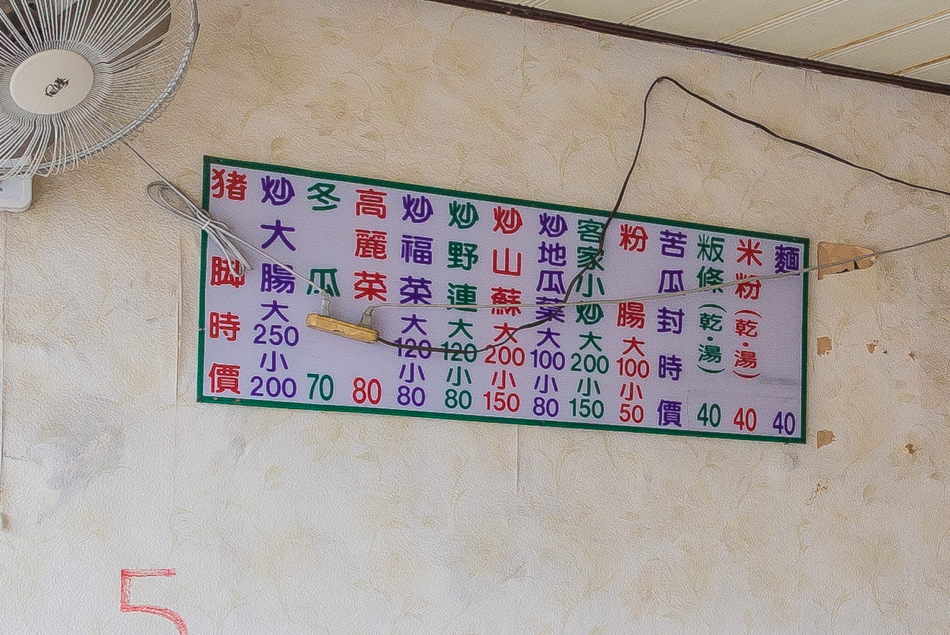 麵 40
米粉(乾·湯) 40
粄條(乾·湯) 40
苦瓜封 時價
粉腸 大100 小50
客家小炒 大200 小150
炒地瓜葉 大100 小80
炒山蘇 大200 小150
炒野蓮 大120 小80
炒福菜 大120 小80
高麗菜 80
冬瓜 70
炒大腸 大250 小200
猪脚 時價
5